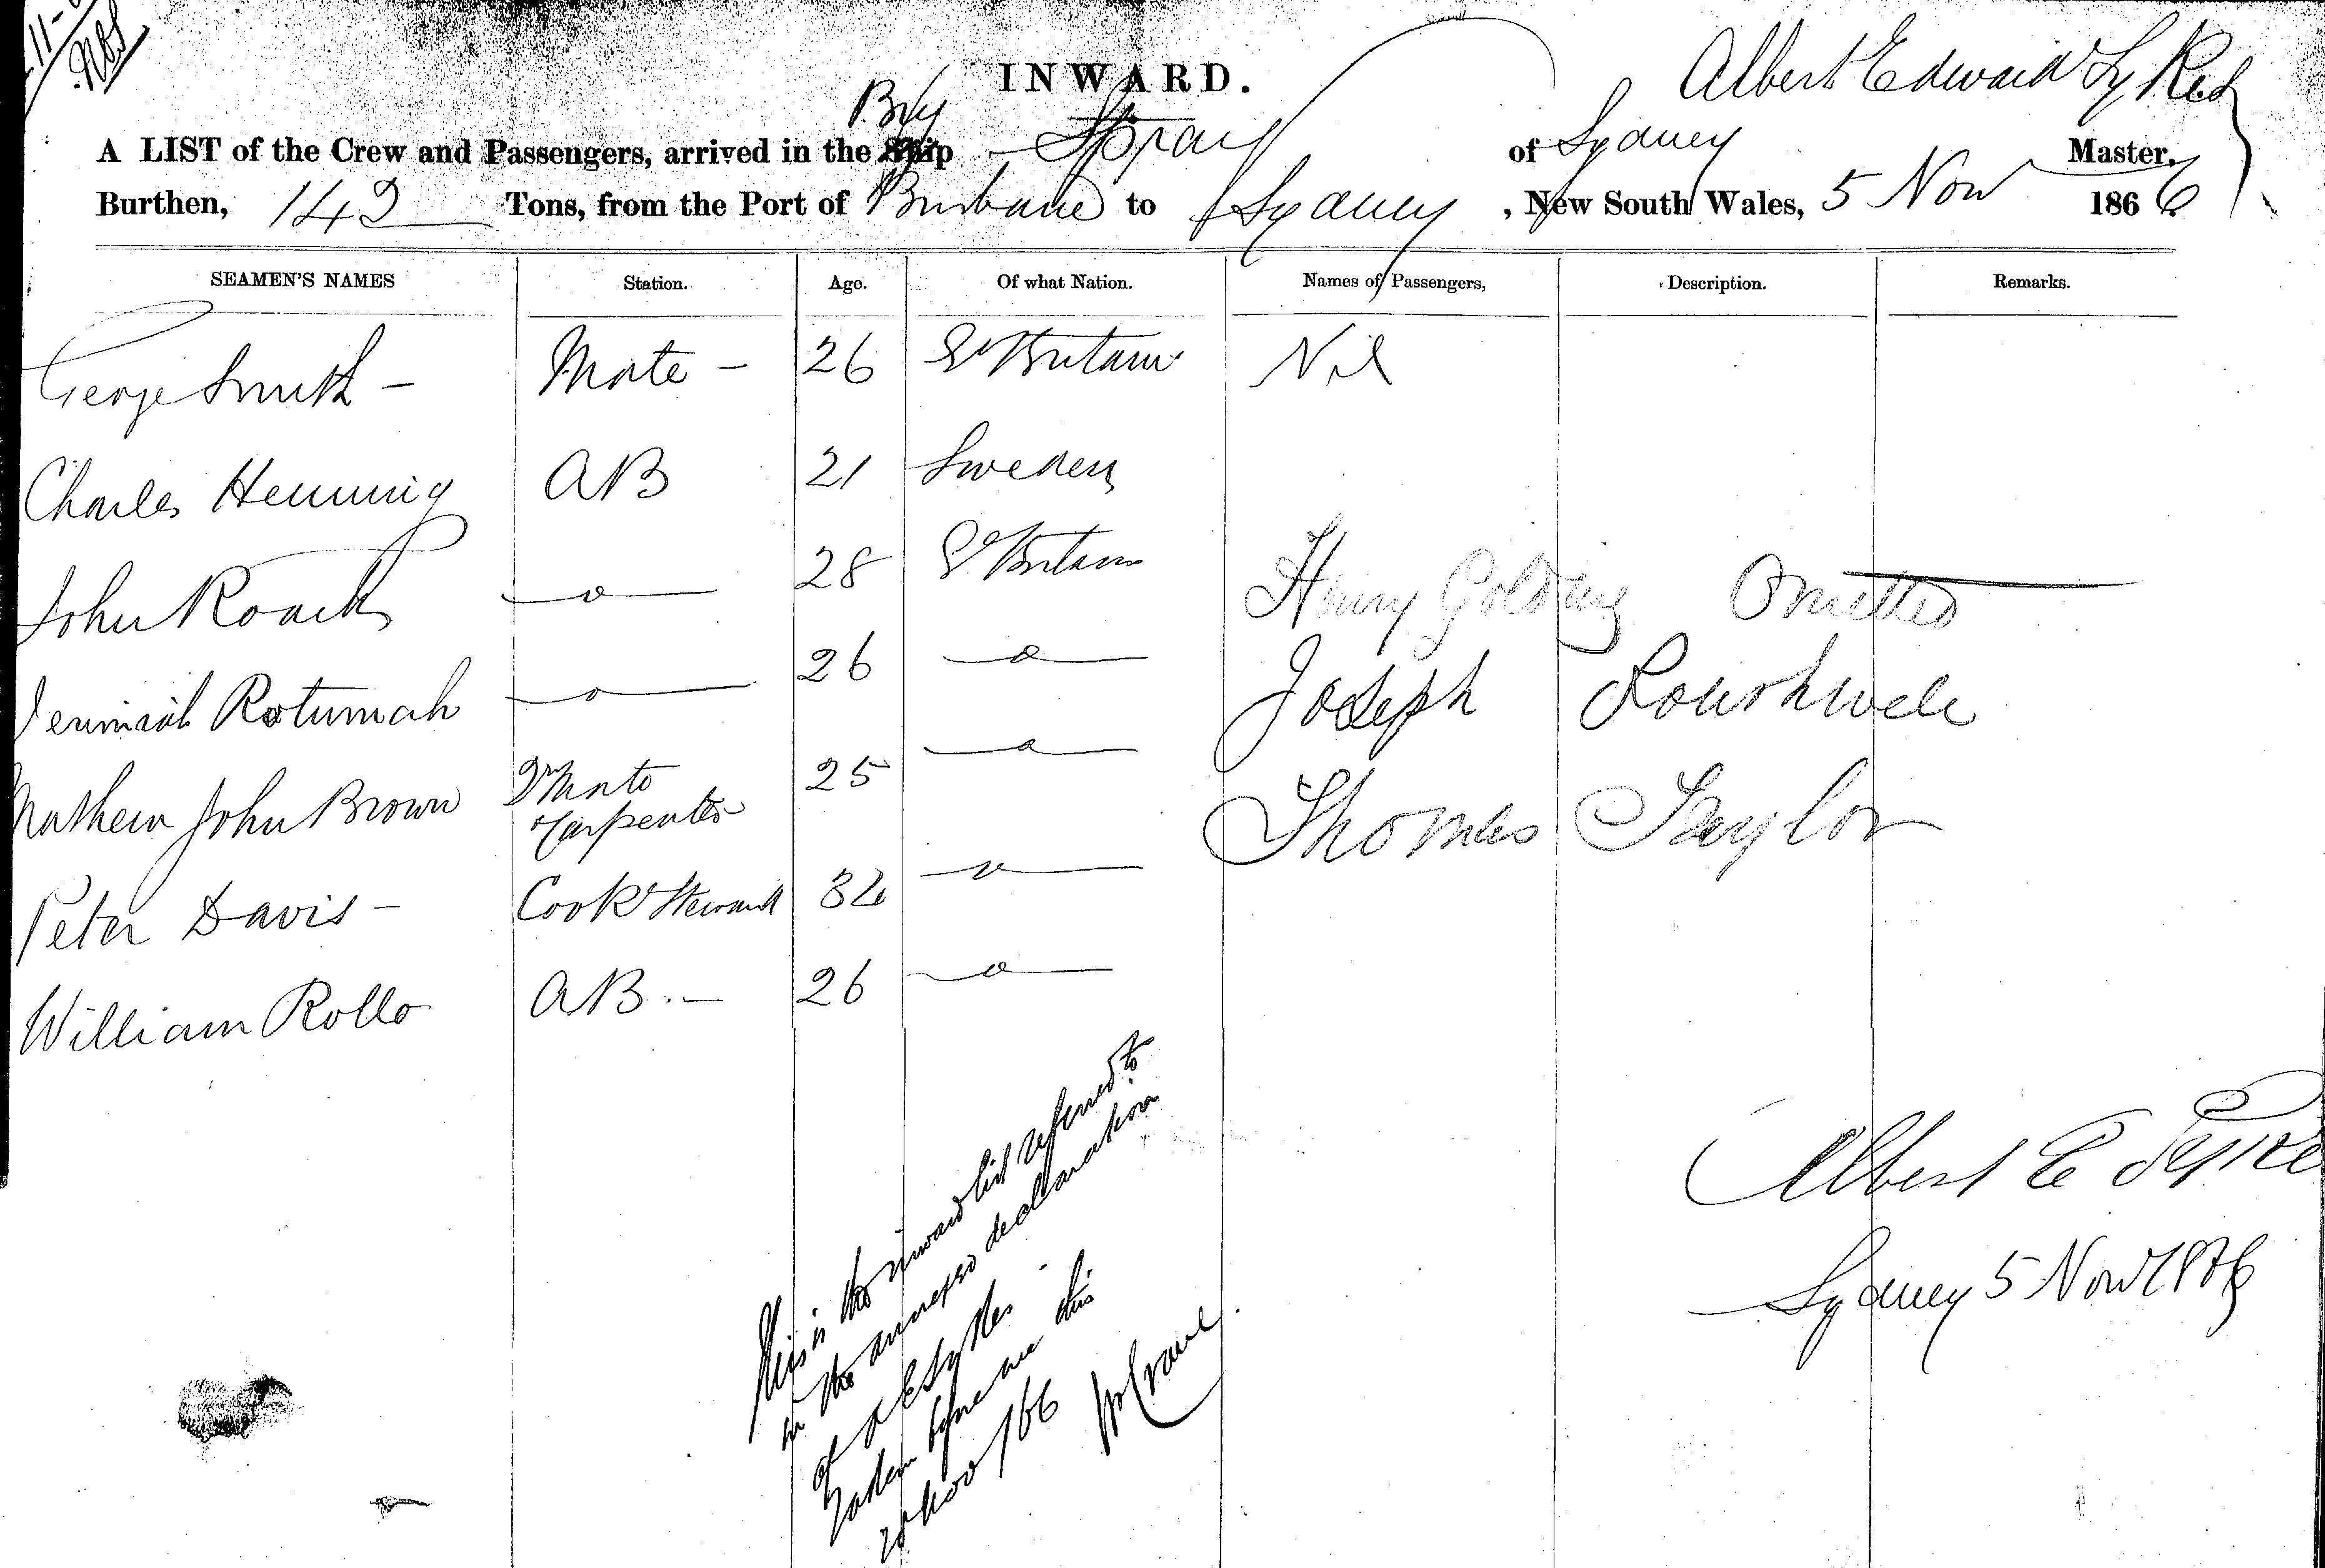 INWARD.
Albert Edward Sykes
A LIST of the Crew and Passengers, arrived in the Ship Brig Spray of Sydney Master,
Burthen, 142 Tons, from the Port of Brisbane to Sydney , New South Wales, 5 Nov 1866
SEAMEN'S NAMES Station. Age. Of what Nation. Names of Passengers, Description. Remarks.
George Smith - Mate - 26 Gt Britain Nil
Charles Henning AB 21 Sweden
John Roach —o— 28 Gt Britain Henry Golding Omitted
Jerimiah Rotumah —o— 26 —o— Joseph
Mathew John Brown 2nd Mate 25 —o— Thomas Taylor
& Carpenter
Peter Davis - Cook & Steward 32 —o—
William Rollo AB.- 26 —o—
This is the inward list referred to
in the annexed declaration
of A E Sykes
taken before me this
Nov /66
Albert E Sykes
Sydney 5 Nov 1866